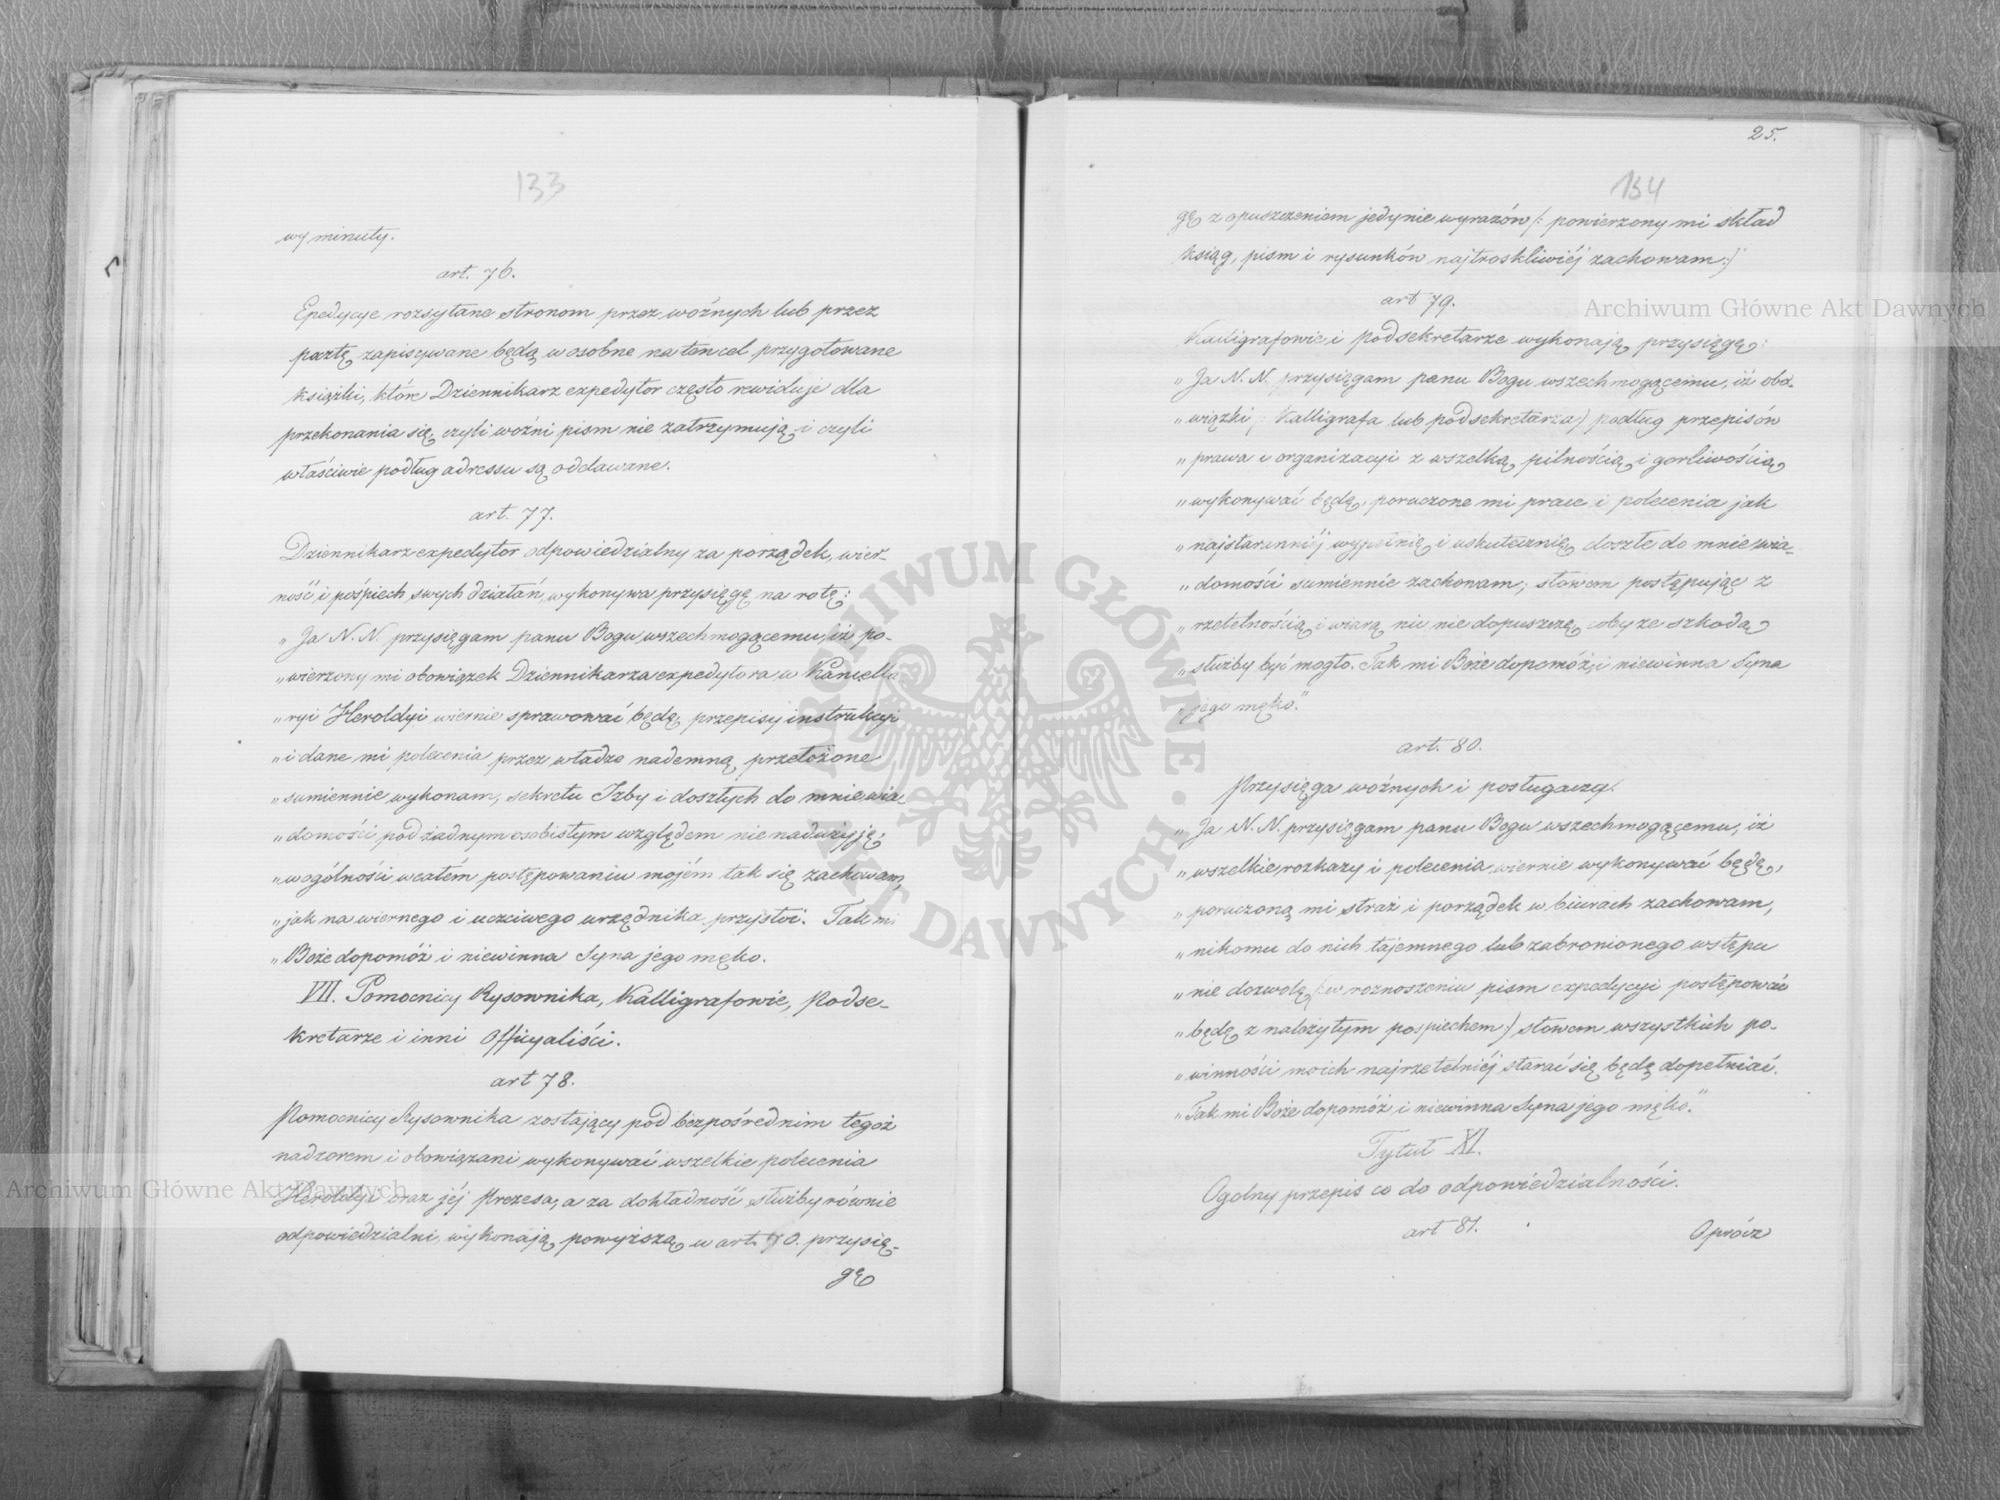 133
wy minuty.
art. 76.
Epedycye rozsyłane stronom przez woźnych lub przez
pocztę zapisywane będą w osobne na ten cel przygotowane
książki, które Dziennikarz expedytor często rewiduje dla
przekonania się, czyli woźni pism nie zatrzymują i czyli
właściwie podług adressu są oddawane.
art. 77.
Dziennikarz expedytor odpowiedzialny za porządek, wier-
ność i pośpiech swych działań, wykonywa przysięgę na rotę:
„Ja N. N. przysięgam panu Bogu wszechmogącemu, iż po-
„wierzony mi obowiązek Dziennikarza expedytora w Kancella
„ryi Heroldyi wiernie sprawować będę, przepisy instrukcyi
„i dane mi polecenia przez władze nademną przełożone
„sumiennie wykonam, sekretu Izby i doszłych do mnie wia-
„domości pod żadnym osobistym względem nie nadużyję,
„wogólności w całém postępowaniu mojém tak się zachowam,
„jak na wiernego i uczciwego urzędnika przystoi. Tak mi
„Boże dopomóż i niewinna Syna jego męko.
VII. Pomocnicy Rysownika, Kalligrafowie, Podse-
kretarze i inni Officyaliści.
art 78.
Pomocnicy Rysownika zostający pod bezpośrednim tegoż
nadzorem i obowiązani wykonywać wszelkie polecenia
Heroldyi oraz jéj Prezesa, a za dokładność służby równie
odpowiedzialni, wykonają powyższą w art. 70. przysię-
gę
25.
134
gę z opuszczeniem jedynie wyrazów /: powierzony mi skład
ksiąg, pism i rysunków najtroskliwiéj zachowam:/
art 79.
Kalligrafowie i podsekretarze wykonają przysięgę:
„Ja N. N. przysięgam panu Bogu wszechmogącemu, iż obo-
„wiązki /: Kalligrafa lub podsekretarza:/ podług przepisów
„prawa i organizacyi z wszelką pilnością i gorliwością
„wykonywać będę, poruczone mi prace i polecenia jak
„najstaranniéj wypełnię i uskutecznię, doszłe do mnie wia-
„domości sumiennie zachowam, słowem postępując z
„rzetelnością i wiarą nic nie dopuszczę coby ze szkodą
„służby być mogło. Tak mi Boże dopomóż, i niewinna Syna
„jego męko."
art. 80.
Przysięga woźnych i posługaczy.
„Ja N. N. przysięgam panu Bogu wszechmogącemu, iż
„wszelkie rozkazy i polecenia wiernie wykonywać będę,
„poruczoną mi straż i porządek w biurach zachowam,
„nikomu do nich tajemnego lub zabronionego wstępu
„nie dozwolę /: w roznoszeniu pism expedycyi postępować
„będę z należytym pospiechem:/ słowem wszystkich po-
„winności moich najrzetelniéj starać się będę dopełniać.
„Tak mi Boże dopomóż i niewinna Syna jego męko."
Tytuł XI.
Ogolny przepis co do odpowiedzialności.
art 81.
Oprócz
Archiwum Główne Akt Dawnych
Archiwum Główne Akt Dawnych
ARCHIWUM GŁÓWNE • AKT DAWNYCH •